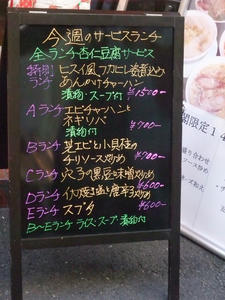 今週のサービスランチ
全ランチ杏仁豆腐サービス
特別 ヒスイ風フカヒレ姿煮込み
ランチ あんかけチャーハン
漬物・スープ付 ¥1500-
Aランチ エビチャーハンと
ネギソバ
漬物付 ¥700-
Bランチ 芝エビと小貝柱の
チリソース炒め ¥700-
Cランチ 穴子の黒豆味噌炒め
Dランチ イカの唐辛子炒め ¥600-
Eランチ スブタ ¥600-
B〜Eランチ ライス・スープ 漬物付
間限定14